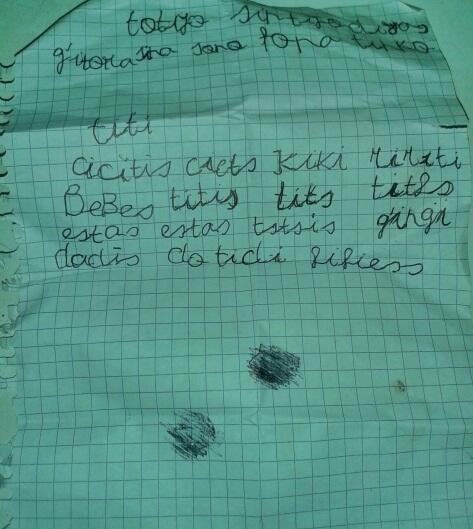 totgo sintgodigos
gitona sna sona fona tyko
titi
cicitis caets kiki Mimiti
BeBes titis tits titss
estas estas totsis gingi
dadis do tidi sisiess